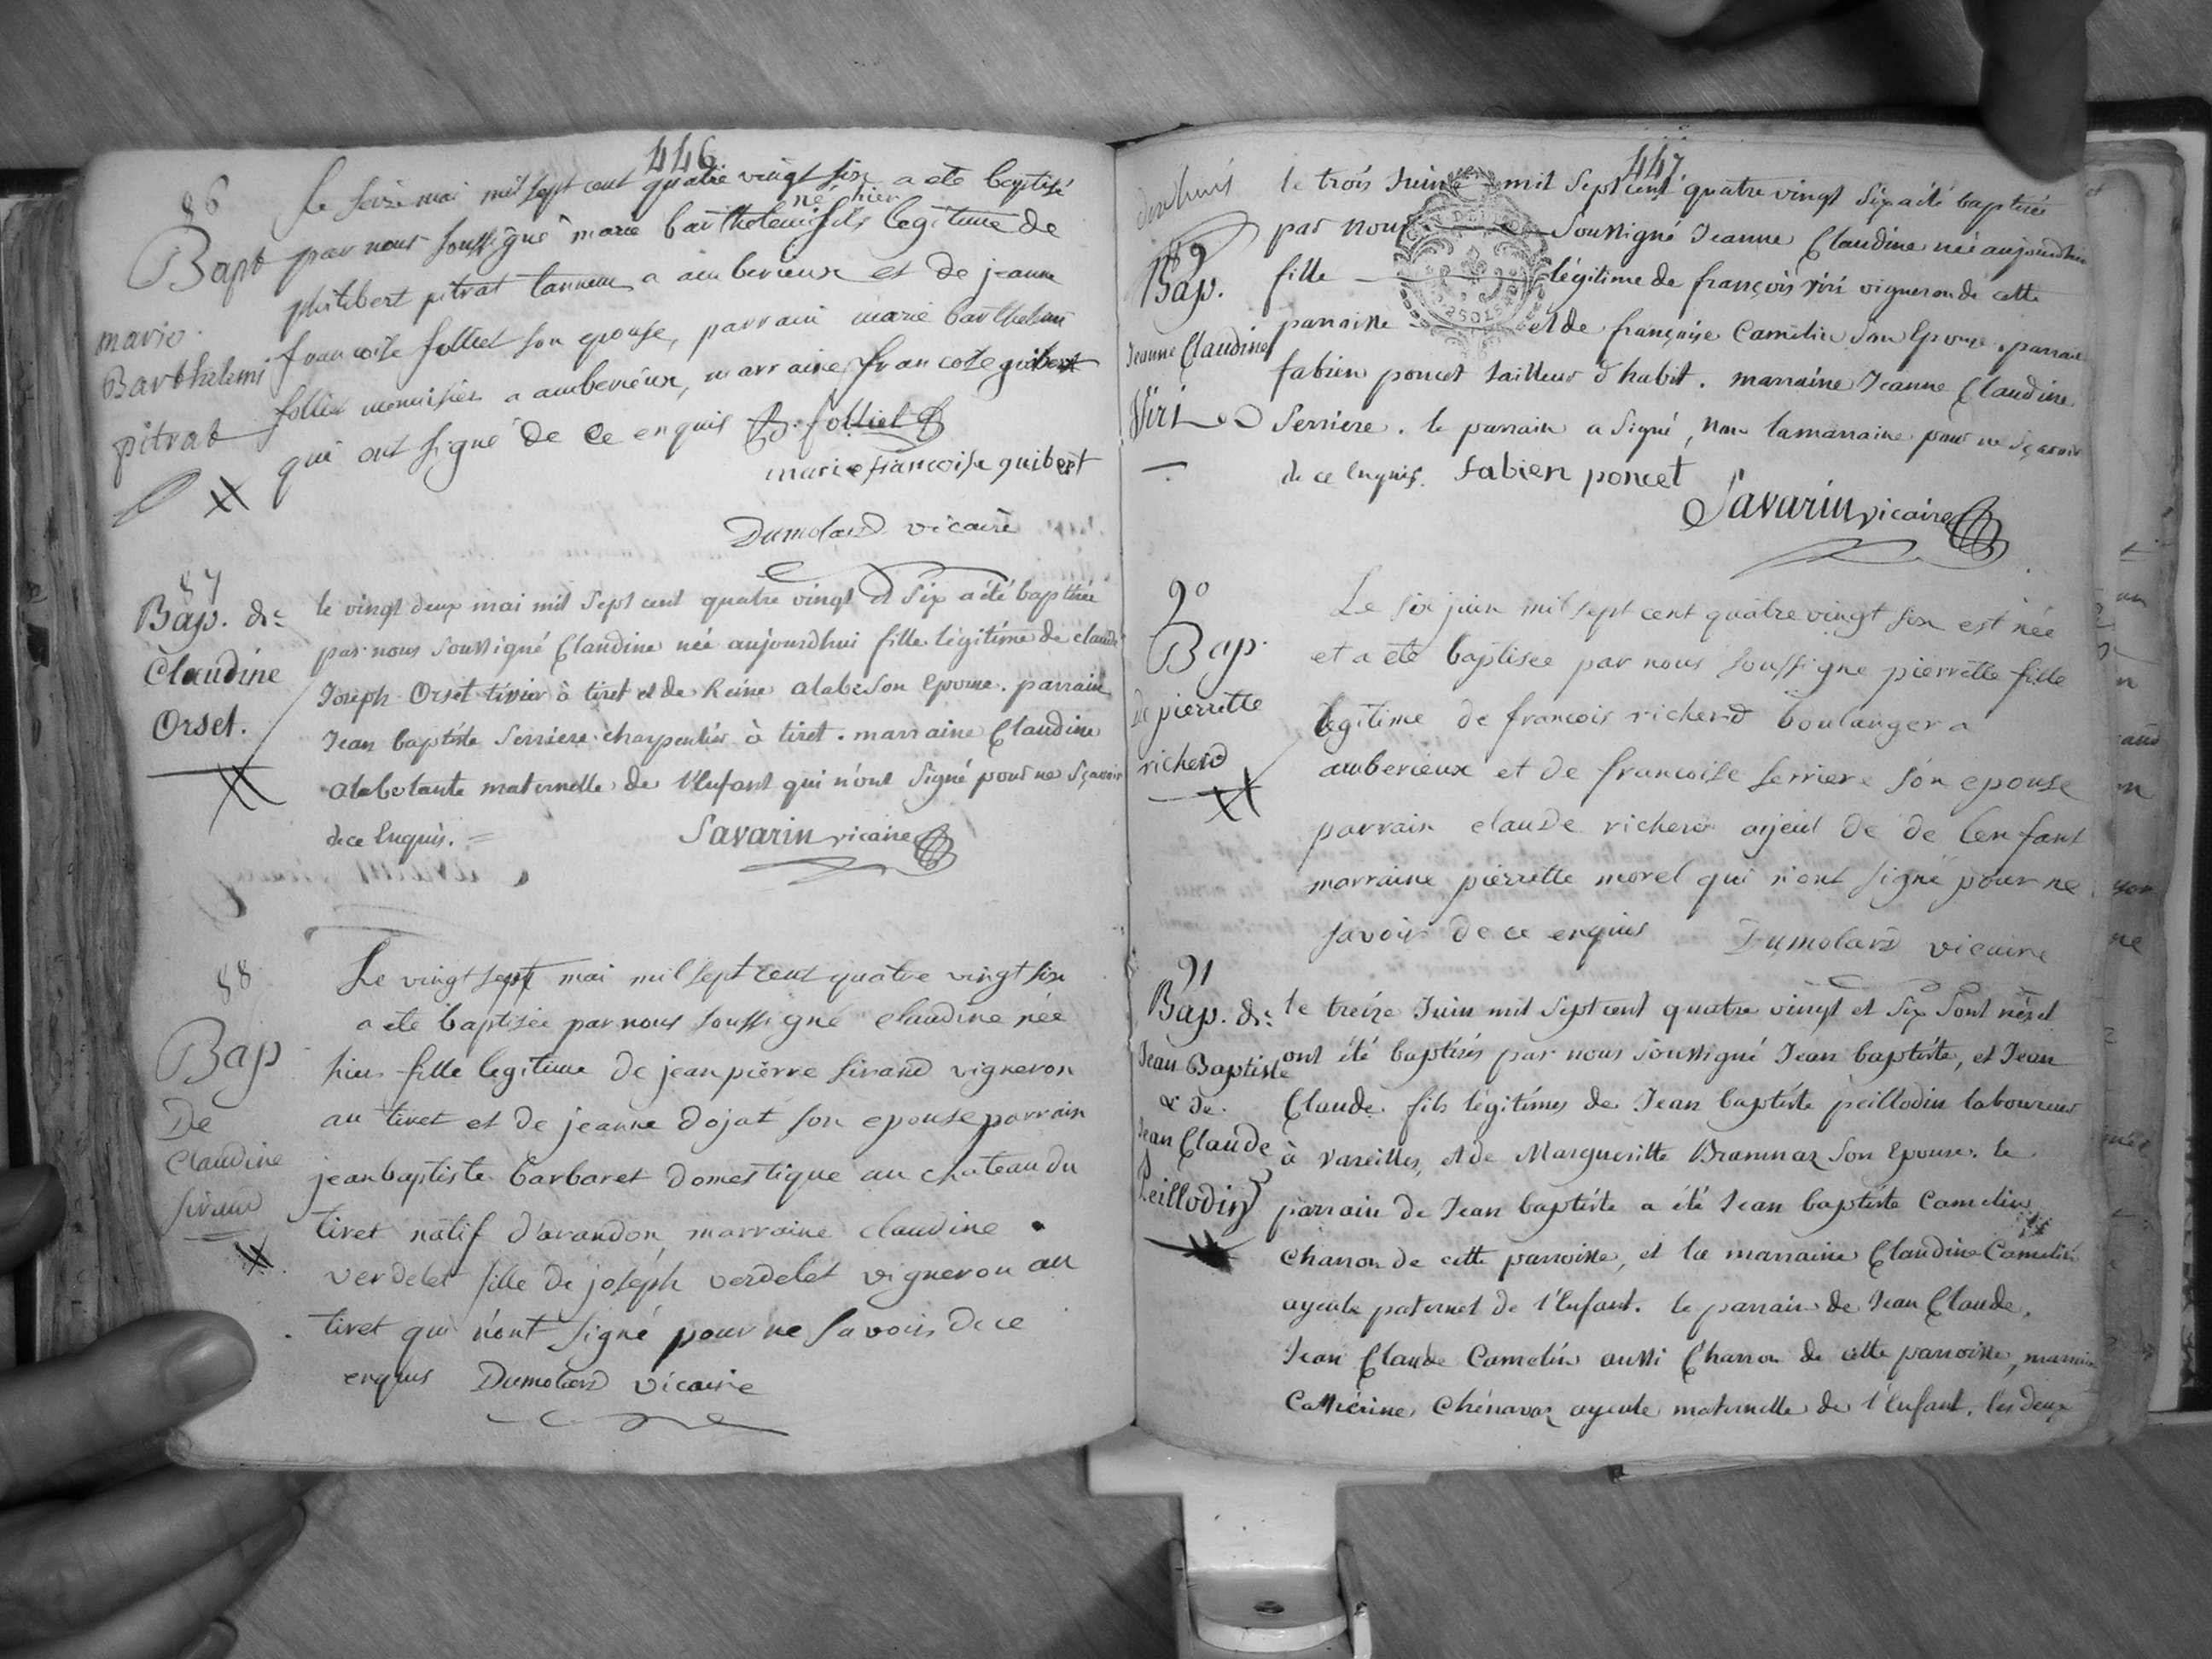 446
86
Bapt
marie
Barthelemi
pitrat
Le seize mai mil sept cent quatre vingt six a ete baptisé
né hier
par nous soussigné marie barthelemi fils legitime de
philibert pitrat tanneur a amberieux et de jeanne
francoise folliet son epouse, parrain marie barthelemi
folliet menuisier a amberieux, marraine francoise guibert
qui ont signé de ce enquis B. folliet
marie francoise guibert
Dumolard vicaire
87
Bap. de
Claudine
Orset.
le vingt deux mai mil sept cent quatre vingt et six a été baptisée
par nous soussigné Claudine née aujourdhui fille légitime de claude
Joseph Orset tissier à tiret et de Reine alabe son epouse. parrain
Jean baptiste serriere charpentier à tiret. marraine Claudine
alabe tante maternelle de l'enfant qui n'ont signé pour ne sçavoir
de ce enquis. Savarin vicaire
88
Bap
De
Claudine
sirand
Le vingt sept mai mil sept cent quatre vingt six
a ete baptisée par nous soussigné claudine née
hier fille legitime de jean pierre sirand vigneron
au tiret et de jeanne dojat son epouse parrain
jean baptiste barbaret domestique au chateau du
tiret natif d'arandon, marraine claudine
verdelet fille de joseph verdelet vigneron au
tiret qui n'ont signé pour ne savoir de ce
enquis Dumolard vicaire
447
dixhuit
89
Bap.
Jeanne Claudine
Viri
le trois Juin mil sept cent quatre vingt six a été baptisée
par nous soussigné Jeanne Claudine née aujourdhui
fille légitime de françois viri vigneron de cette
parroisse et de françoise Camelin son epouse. parrain
fabien poncet tailleur d'habit. marraine Jeanne Claudine
serriere. le parrain a signé, non la marraine pour ne sçavoir
de ce enquis. fabien poncet
Savarin vicaire
90
Bap.
de pierrette
richerd
Le six juin mil sept cent quatre vingt six est née
et a eté baptisee par nous soussigne pierrette fille
legitime de francois richerd boulanger a
amberieux et de francoise serriere son epouse
parrain claude richerd ayeul de de l'enfant
marraine pierrette morel qui n'ont signé pour ne
savoir de ce enquis Dumolard vicaire
91
Bap. de
Jean Baptiste
& de
Jean Claude
Peillodin
le treize Juin mil sept cent quatre vingt et six sont nés et
ont été baptisés par nous soussigné Jean baptiste, et Jean
Claude fils légitimes de Jean baptiste peillodin laboureur
à vareilles, et de Margueritte Bramnaz son epouse. le
parrain de Jean baptiste a été Jean baptiste Camelin
charron de cette parroisse, et la marraine Claudine Camelin
ayeule paternel de l'enfant. le parrain de Jean Claude,
Jean Claude Camelin aussi Charron de cette parroisse, marraine
Catherine Chenavaz ayeule maternelle de l'enfant. les deux